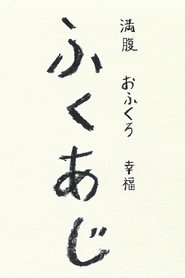 満腹　おふくろ　幸福
ふくあじ